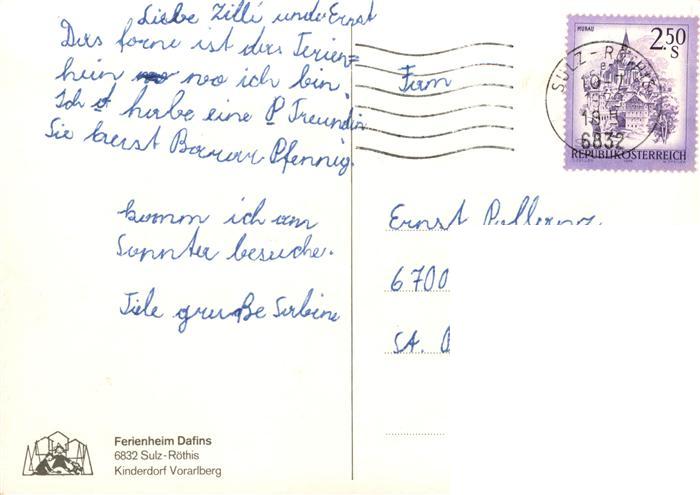 Liebe Zilli und Ernst
Das forne ist das Ferien=
heim wo ich bin.
Ich habe eine Freundin
Sie heist Pfennig.
komm ich am
Sonnta besuche.
Fiele gruße Sabine
Fam
Ernst
6700
St.
MURAU
2.50
S
REPUBLIK ÖSTERREICH
SULZ-RÖTHIS
6832
Ferienheim Dafins
6832 Sulz-Röthis
Kinderdorf Vorarlberg